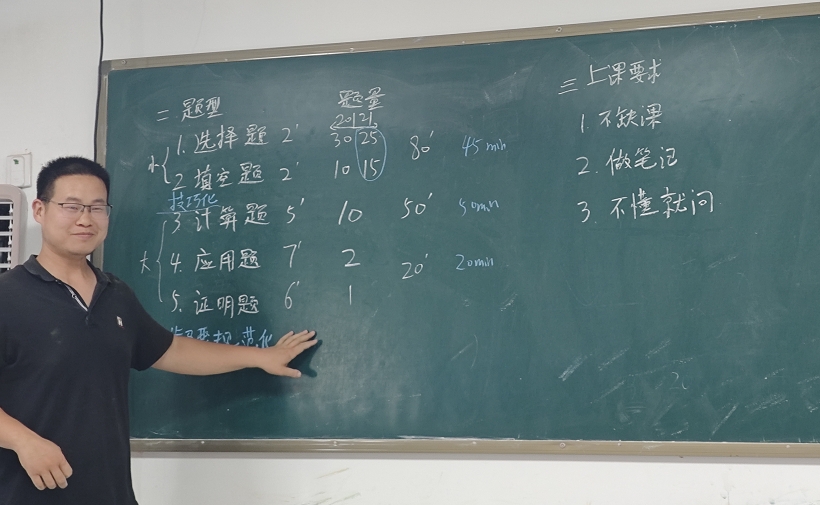 二 题型
题量
20 21
小 1. 选择题 2' 30 25 80' 45min
2 填空题 2' 10 15
技巧化
3. 计算题 5' 10 50' 50min
大 4. 应用题 7' 2 20' 20min
5. 证明题 6' 1
规范化
三 上课要求
1. 不缺课
2. 做笔记
3. 不懂就问